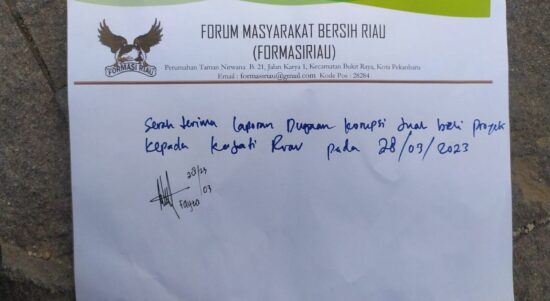 FORUM MASYARAKAT BERSIH RIAU
(FORMASIRIAU)
Perumahan Taman Nirwana B. 21, Jalan Karya 1, Kecamatan Bukit Raya, Kota Pekanbaru
Email : formasiriau@gmail.com Kode Pos : 28284
FORMASI RIAU
Serah terima laporan Dugaan korupsi Jual beli proyek
kepada Kajati Riau pada 28/03/2023
28/23
03